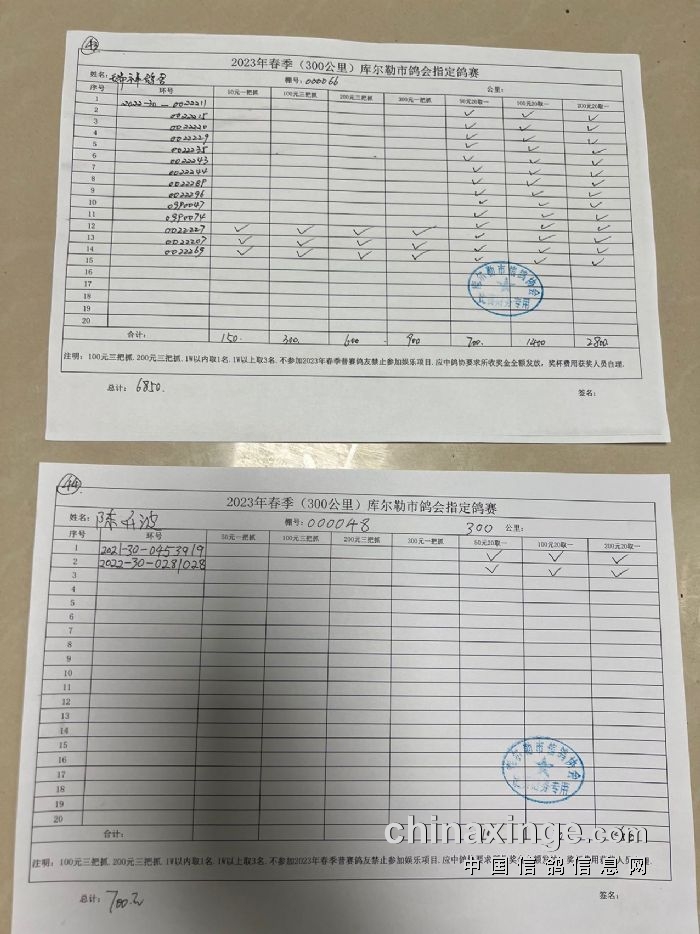 43
2023年春季（300公里）库尔勒市鸽会指定鸽赛
姓名: 祥鸽舍 棚号: 000066 公里:
序号 环号 50元一把抓 100元三把抓 200元三把抓 300元一把抓 50元20取一 100元20取一 200元20取一
1 2022-30-0022211 ✓ ✓ ✓
2 0022215 ✓ ✓ ✓
3 0022220 ✓ ✓ ✓
4 0022229 ✓ ✓ ✓
5 0022235 ✓ ✓ ✓
6 0022243 ✓ ✓ ✓
7 0022244 ✓ ✓ ✓
8 0022289 ✓ ✓ ✓
9 0022296 ✓ ✓ ✓
10 0390047 ✓ ✓ ✓
11 0390074 ✓ ✓ ✓
12 0022227 ✓ ✓ ✓ ✓ ✓ ✓ ✓
13 0022207 ✓ ✓ ✓ ✓ ✓ ✓ ✓
14 0022269 ✓ ✓ ✓ ✓ ✓ ✓ ✓
15
16
17
18
19
20
库尔勒市信鸽协会
专用
合计: 150. 300. 600. 900 700. 1400 2800
注明: 100元三把抓.200元三把抓.1W以内取1名.1W以上取3名.不参加2023年春季普赛鸽友禁止参加娱乐项目.应中鸽协要求所收奖金全额发放，奖杯费用获奖人员自理.
总计: 6850. 签名:
44
2023年春季（300公里）库尔勒市鸽会指定鸽赛
姓名: 陈 波 棚号: 000048 300 公里:
序号 环号 50元一把抓 100元三把抓 200元三把抓 300元一把抓 50元20取一 100元20取一 200元20取一
1 2021-30-0453919 ✓ ✓ ✓
2 2022-30-0281028 ✓ ✓ ✓
3
4
5
6
7
8
9
10
11
12
13
14
15
16
17
18
19
20
库尔勒市信鸽协会
专用
合计:
chinaxinge.com
注明: 100元三把抓.200元三把抓.1W以内取1名.1W以上取3名.不参加2023年春季普赛鸽友禁止参加娱乐项目.应中鸽协要求所收奖金全额发放，奖杯费用获奖人员自理.
中国信鸽信息网
总计: 700.元 签名: